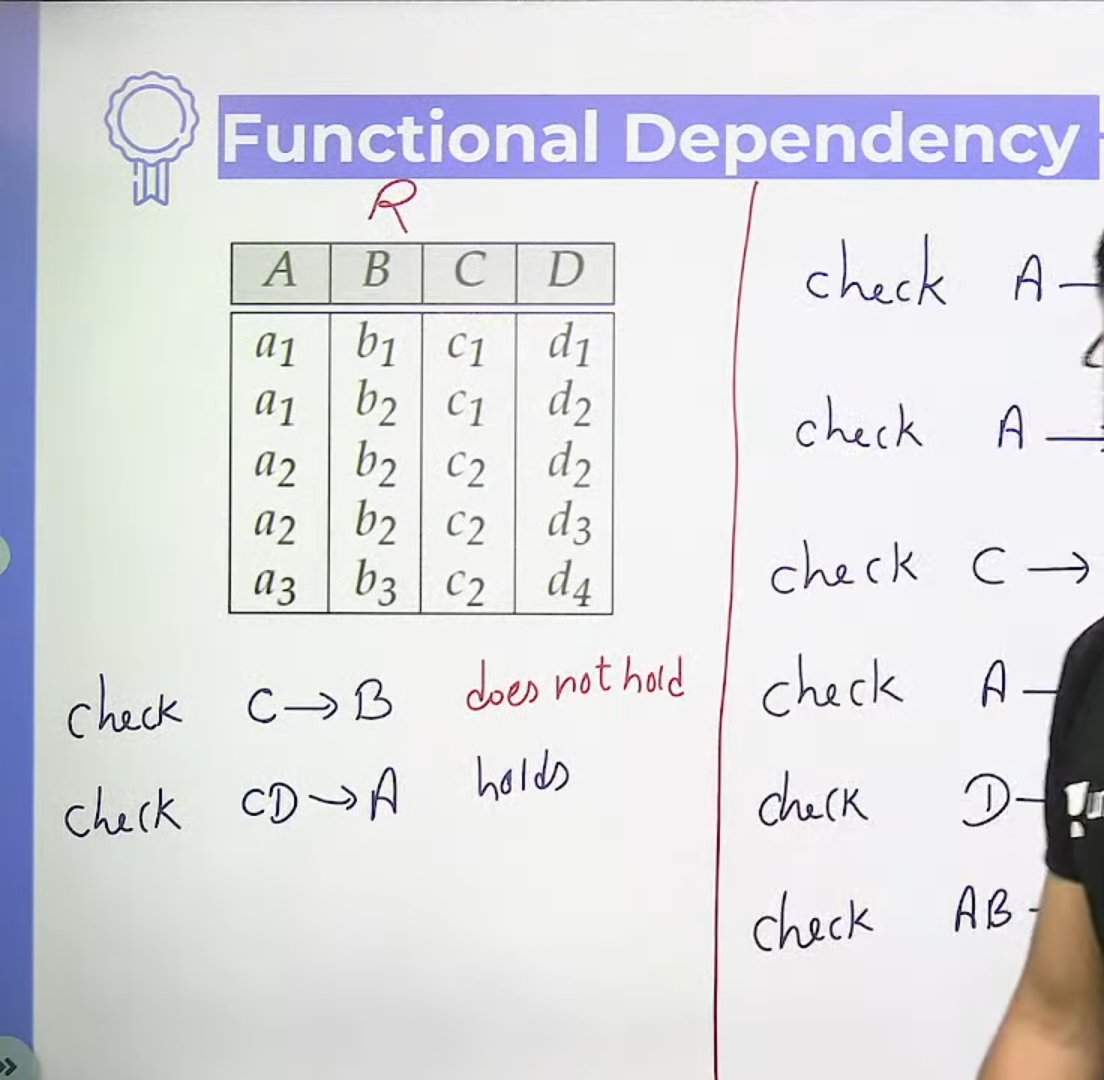 Functional Dependency
R
A B C D
a1 b1 c1 d1
a1 b2 c1 d2
a2 b2 c2 d2
a2 b2 c2 d3
a3 b3 c2 d4
check C → B does not hold
check CD → A holds
check A
check A →
check C →
check A
check D
check AB